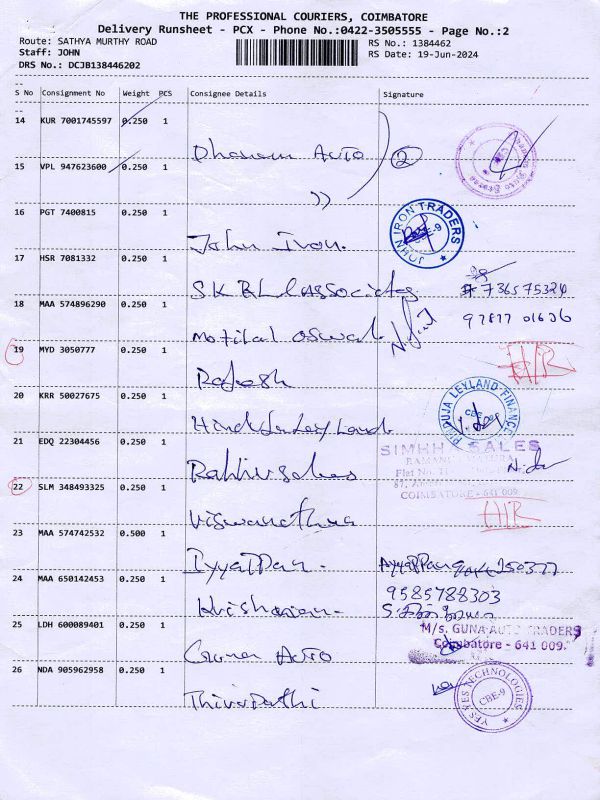 THE PROFESSIONAL COURIERS, COIMBATORE
Delivery Runsheet - PCX - Phone No.:0422-3505555 - Page No.:2
Route: SATHYA MURTHY ROAD
RS No.: 1384462
Staff: JOHN
RS Date: 19-Jun-2024
DRS No.: DCJB138446202
S No Consignment No Weight PCS Consignee Details Signature
14 KUR 7001745597 0.250 1
Dhanam Auto 2
15 VPL 947623600 0.250 1
))
16 PGT 7400815 0.250 1
John Iron.
JOHN IRON TRADERS
CBE-9
17 HSR 7081332 0.250 1
SKBL Associates
736575324
18 MAA 574896290 0.250 1
97877 01636
Motilal Oswal
19 MYD 3050777 0.250 1
Rajesh
H/R
20 KRR 50027675 0.250 1
HINDUJA LEYLAND FINANCE
CBE
Hinduja Leyland
21 EDQ 22304456 0.250 1
SIMHA SALES
COIMBATORE - 641 009.
22 SLM 348493325 0.250 1
H/R
Viswanathan
23 MAA 574742532 0.500 1
Iyyappan.
24 MAA 650142453 0.250 1
9585788303
Krishanan-
25 LDH 600089401 0.250 1
M/s. GUNA AUTO TRADERS
Coimbatore - 641 009.
Guna Auto
26 NDA 905962958 0.250 1
YES YES TECHNOLOGIES
CBE-9
Thirupathi